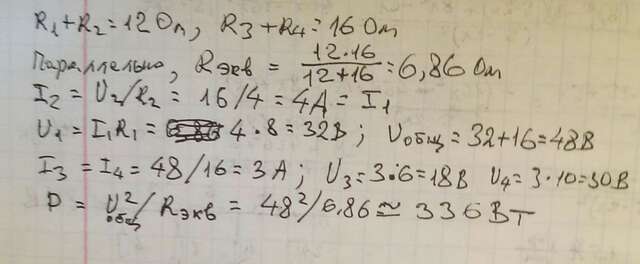 R₁+R₂=12 Ом, R₃+R₄=16 Ом
Параллельно, Rэкв = 12·16/12+16 = 6,86 Ом
I₂ = U₂/R₂ = 16/4 = 4A = I₁
U₁ = I₁R₁ = 4·8 = 32В; Uобщ = 32+16=48В
I₃ = I₄ = 48/16 = 3А; U₃ = 3·6=18В U₄ = 3·10=30В
P = U²общ/Rэкв = 48²/6,86 ≃ 336 Вт